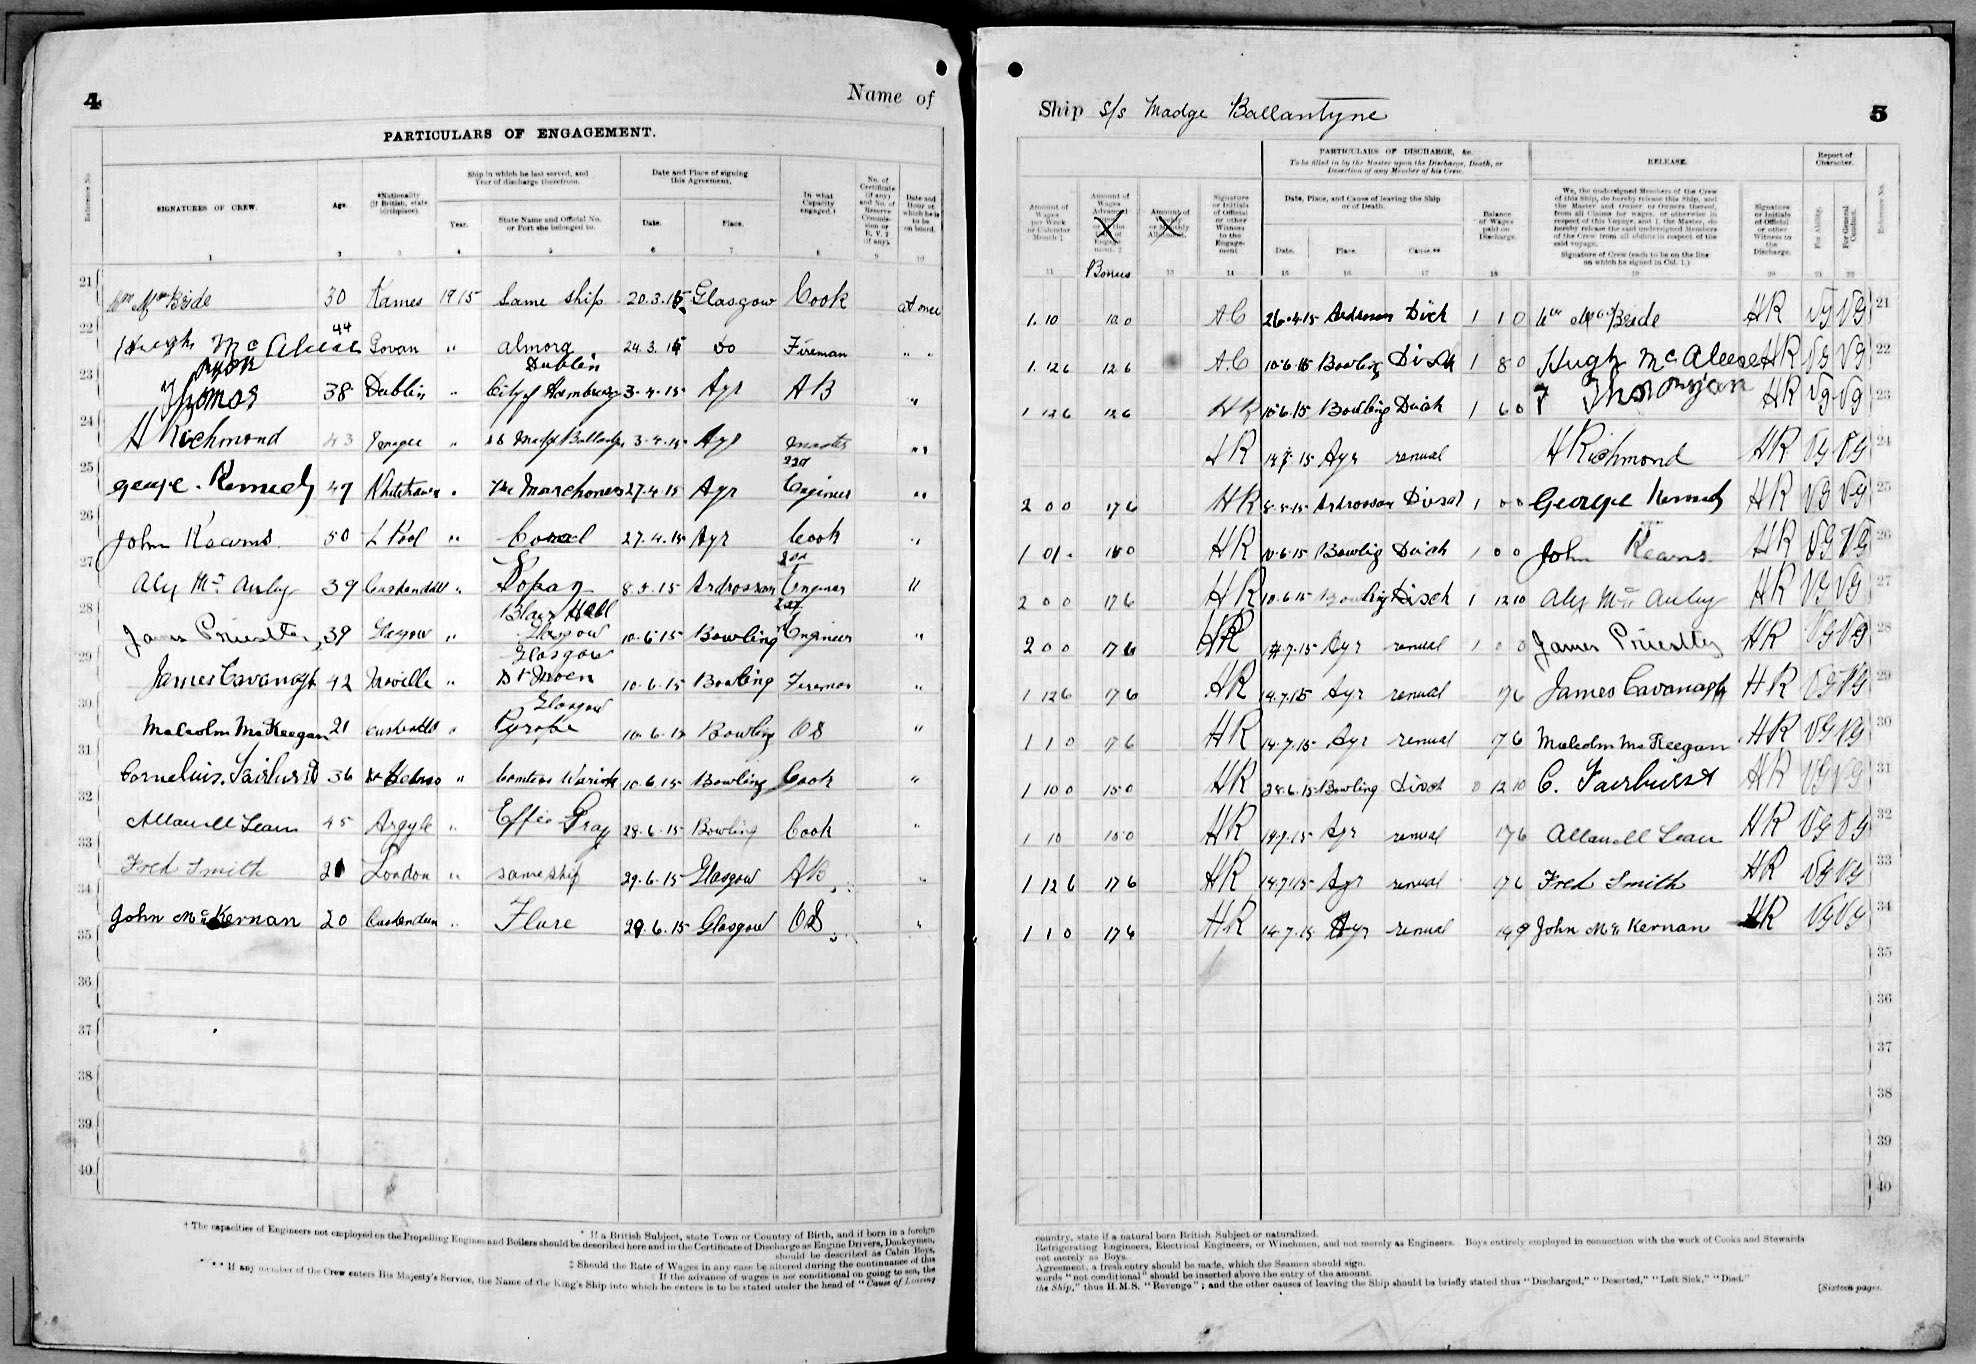 4
Name of
PARTICULARS OF ENGAGEMENT.
Reference No.
SIGNATURES OF CREW.
Age.
*Nationality (if British, state birthplace).
Ship in which he last served, and Year of discharge therefrom.
Year.
State Name and Official No. or Port she belonged to.
Date and Place of signing this Agreement.
Date.
Place.
In what Capacity engaged.†
No. of Certificate (if any) and No. of Reserve Commission or R. V. 2 (if any).
Date and Hour at which he is to be on board.
1 2 3 4 5 6 7 8 9 10
21 Wm McBride 30 Kames 1915 Same ship 20.3.15 Glasgow Cook at once
22 Hugh McAleese 44 Govan " Almora 24.3.15 do Fireman " "
23 Thomas Ryan 38 Dublin " City of Hambourg Dublin 3-4-15 Ayr AB "
24 H Richmond 43 " SS Madge Ballantyne 3-4-15 Ayr Master "
25 George Kennedy 47 " The Marchoness 27.4.15 Ayr 2nd Engineer "
26 John Kearns 50 L Pool " Coral 27.4.15 Ayr Cook "
27 Alex McAuley 39 Cushendall " 8.5.15 Ardrossan 2nd Engineer "
28 James Priestley 39 Glasgow " Blair Hall Glasgow 10.6.15 Bowling 2nd Engineer "
29 James Cavanagh 42 Moville " Glasgow 10.6.15 Bowling Fireman "
30 Malcolm McKeegan 21 Cushendall " Glasgow 10.6.15 Bowling OS "
31 Cornelius Fairhurst 36 St Helens " Countess Warick 10.6.15 Bowling Cook "
32 45 Argyle " Effie Gray 28.6.15 Bowling Cook "
33 Fred Smith 21 London " same ship 29.6.15 Glasgow AB "
34 John McKernan 20 Cushendun " Flure 29.6.15 Glasgow OS "
35
36
37
38
39
40
† The capacities of Engineers not employed on the Propelling Engines and Boilers should be described here and in the Certificate of Discharge as Engine Drivers, Donkeymen,
* If a British Subject, state Town or Country of Birth, and if born in a foreign
should be described as Cabin Boys,
‡ Should the Rate of Wages in any case be altered during the continuance of this
If the advance of wages is not conditional on going to sea, the
** If any member of the Crew enters His Majesty's Service, the Name of the King's Ship into which he enters is to be stated under the head of "Cause of Leaving
Ship S/S Madge Ballantyne
5
Amount of Wages per Week or Calendar Month ‡
Amount of Wages Advanced
Bonus
Amount of Weekly or Monthly Allotment.
Signature or Initials of Official or other Witness to the Engagement
PARTICULARS OF DISCHARGE, &c.
To be filled in by the Master upon the Discharge, Death, or Insertion of any Member of his Crew.
Date, Place, and Cause of leaving the Ship or of Death.
Date.
Place.
Cause.**
Balance of Wages paid on Discharge.
RELEASE.
We, the undersigned Members of the Crew of this Ship, do hereby release this Ship, and the Master and Owner or Owners thereof, from all Claims for wages, or otherwise in respect of this Voyage, and I, the Master, do hereby release the said undersigned Members of the Crew from all claims in respect of the said voyage.
Signature of Crew (each to be on the line on which he signed in Col. 1.)
Signature or Initials of Official or other Witness to the Discharge.
Report of Character.
For Ability.
For General Conduct.
Reference No.
11 13 14 15 16 17 18 19 20 21 22
1.10 10 0 AC 26.4.15 Ardrossan Disch 1 1 0 Wm McBride HR VG VG 21
1.12 6 12 6 AC 10.6.15 Bowling Disch 1 8 0 Hugh McAleese HR VG VG 22
1 12 6 12 6 HR 10.6.15 Bowling Disch 1 6 0 Thomas Ryan HR VG VG 23
HR 14.7.15 Ayr renual H Richmond HR VG VG 24
2 0 0 17 6 HR 8.5.15 Ardrossan Disch 1 0 0 George Kennedy HR VG VG 25
HR 10.6.15 Bowling Disch 1 0 0 John Kearns HR VG VG 26
2 0 0 17 6 HR 10.6.15 Bowling Disch 1 12 10 Alex McAuley HR VG VG 27
2 0 0 17 6 HR 14.7.15 Ayr renual 1 0 0 James Priestley HR VG VG 28
1 12 6 17 6 HR 14.7.15 Ayr renual 17 6 James Cavanagh HR VG VG 29
1 1 0 17 6 HR 14.7.15 Ayr renual 17 6 Malcolm McKeegan HR VG VG 30
1 10 0 15 0 HR 28.6.15 Bowling Disch 0 12 10 C. Fairhurst HR VG VG 31
1 10 15 0 HR 14.7.15 Ayr renual 17 6 HR VG VG 32
1 12 6 17 6 HR 14.7.15 Ayr renual 17 6 Fred Smith HR VG VG 33
1 1 0 17 6 HR 14.7.15 Ayr renual 14 9 John McKernan HR VG VG 34
35
36
37
38
39
40
country, state if a natural born British Subject or naturalized.
Refrigerating Engineers, Electrical Engineers, or Winchmen, and not merely as Engineers. Boys entirely employed in connection with the work of Cooks and Stewards
not merely as Boys.
Agreement, a fresh entry should be made, which the Seamen should sign.
words "not conditional" should be inserted above the entry of the amount.
the Ship," thus H.M.S. "Revenge"; and the other causes of leaving the Ship should be briefly stated thus "Discharged," "Deserted," "Left Sick," "Died."
[Sixteen pages.